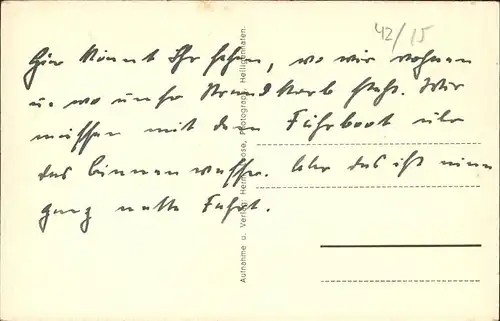 42/15
Hier könnt Ihr sehen, wo wir wohnen
u. wo unser Strandkorb steht. Wir
müssen mit dem Fährboot über
das Binnenwasser. Aber das ist eine
ganz nette Fahrt.
Aufnahme u. Verlag: Herm. Photograph, Heiligenhafen.